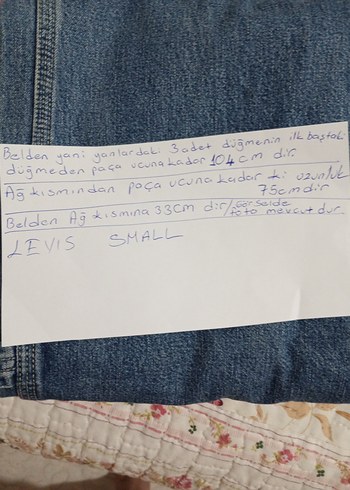 Belden yani yanlardaki 3 adet düğmenin ilk baştaki
düğmeden paça ucuna kadar 104 cm dir
Ağ kısmından paça ucuna kadar ki uzunluk
75cm dir
Belden Ağ kısmına 33cm dir/ Görselde
foto mevcutdur.
LEVIS SMALL